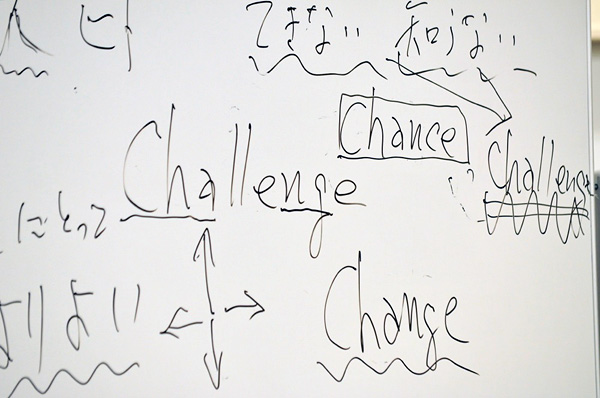 できない 知らない
Chance
Challenge
Challenge
にとって
よりよい
Change